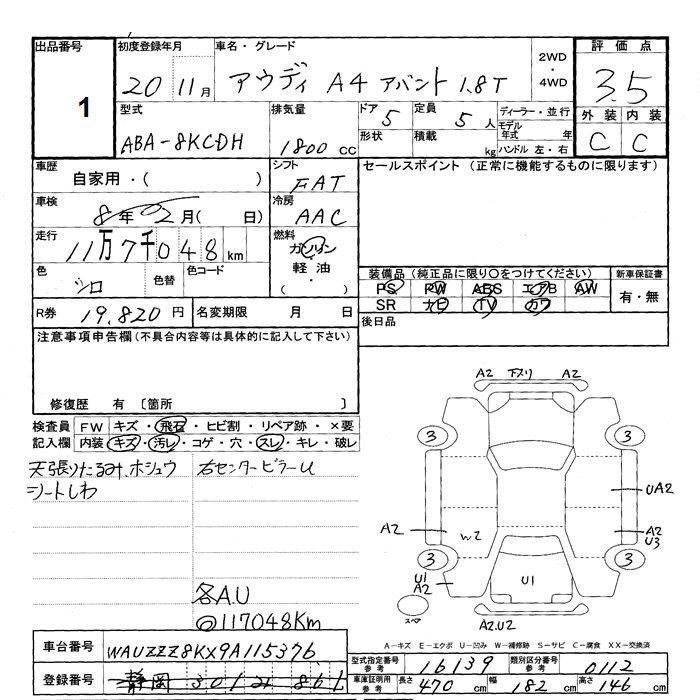 出品番号 初度登録年月 車名・グレード 2WD・4WD 評価点
1 20 11月 アウディ A4 アバント 1.8T 3.5
型式 排気量 ドア 5 定員 5人 ディーラー・並行 外装 内装
ABA-8KCDH 1800cc 形状 積載 kg モデル年式 年 ハンドル 左・右 C C
車歴 シフト セールスポイント (正常に機能するものに限ります)
自家用・( ) FAT
車検 8年 2月( 日) 冷房 AAC
走行 11万7千048km 燃料 ガソリン・軽油・( )
色 シロ 色替 色コード
装備品(純正品に限り○をつけてください) 新車保証書
PS PW ABS エアB AW 有・無
SR ナビ TV カワ
R券 19,820円 名変期限 月 日 後日品
注意事項申告欄(不具合内容等は具体的に記入して下さい)
修復歴 有 〔箇所 〕
検査員記入欄 FW キズ・飛石・ヒビ割・リペア跡・×要
内装 キズ・汚レ・コゲ・穴・スレ・キレ・破レ
天張りたるみ、ホシュウ 右センターピラーU
シートしわ
各A.U
◎117048Km
A2 下スリ A2
3 3
UA2
A2 W2 A2 U3
3 3
U1 A2 U1
スペア A2.U2
A-キズ E-エクボ U-凹み W-補修跡 S-サビ C-腐食 XX-交換済
車台番号 WAUZZZ8KX9A115376
型式指定番号 参考 16139 類別区分番号 参考 0112
登録番号 静岡 301
車庫証明用 参考 長さ 470cm 幅 182cm 高さ 146cm